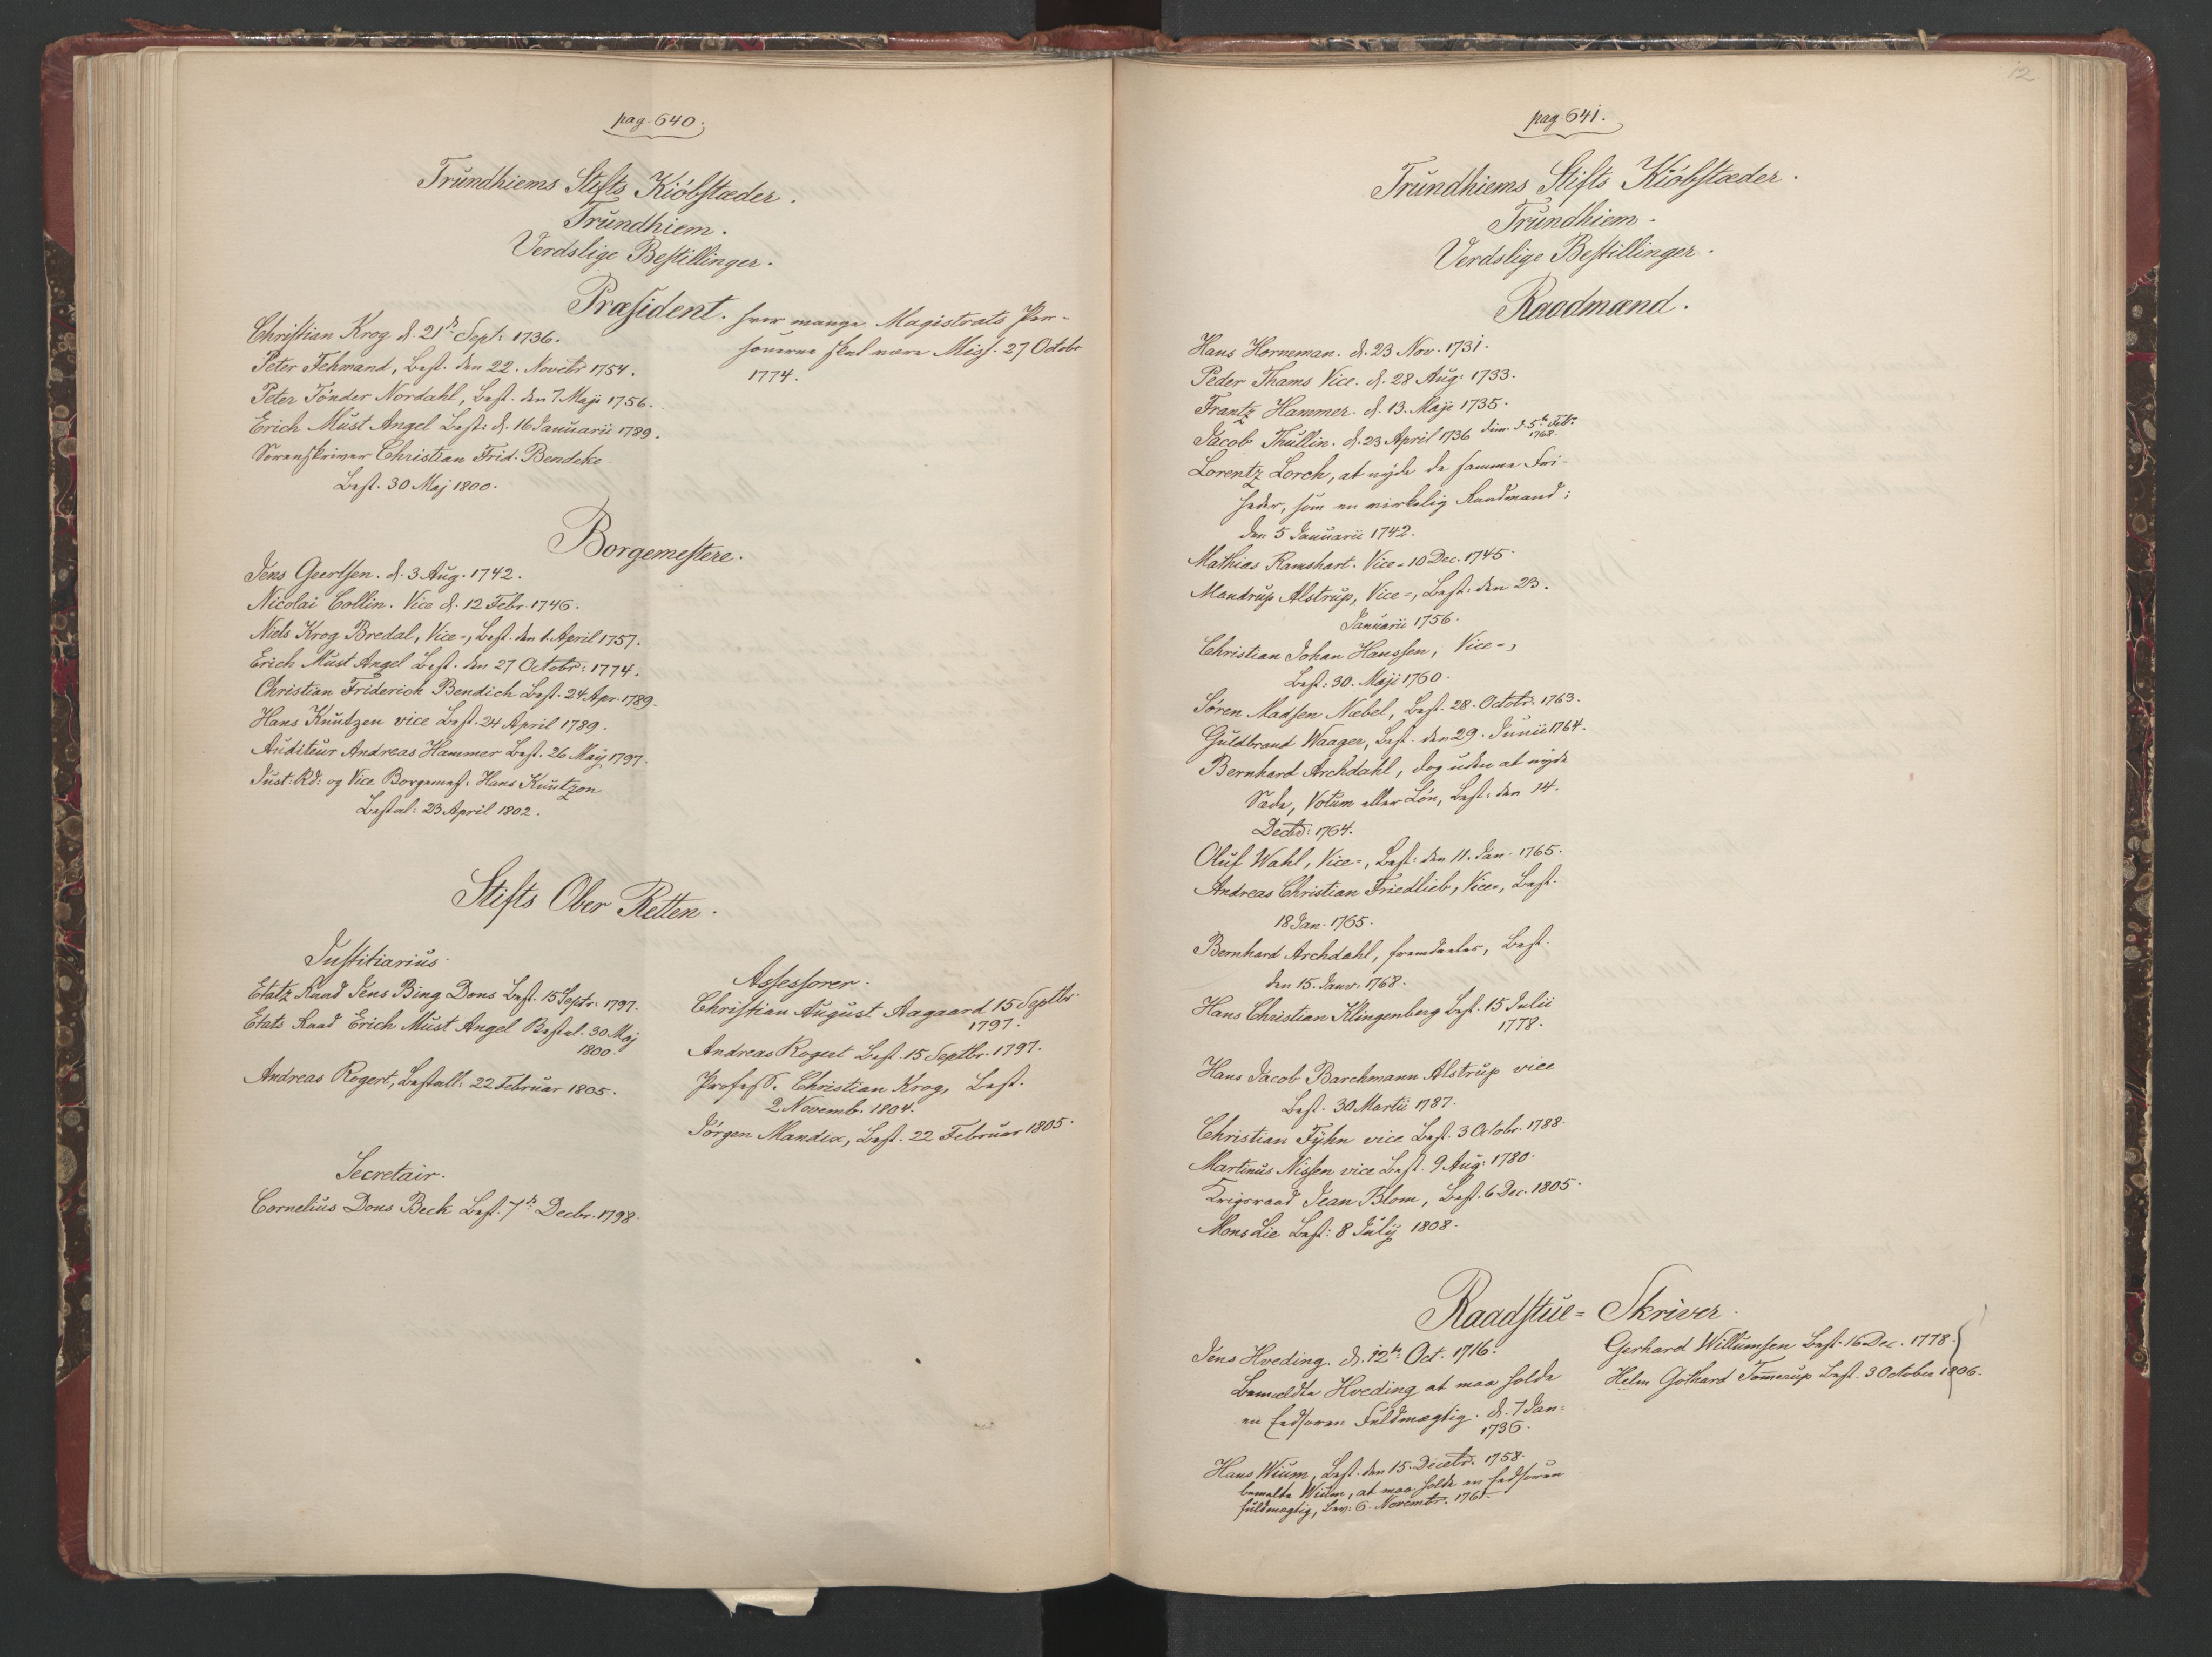 pag. 640.
Trundhiems Stifts Kiöbstæder.
Trundhiem.
Verdslige Bestillinger.
Præsident.
Christian Krog d. 21de Sept: 1736.
Peter Fehmand, Best. den 22. Novebr 1754.
Peter Tönder Nordahl, Best. den 7 Maji 1756.
Erich Must Angel Best: d. 16 Januarii 1789.
Sorenskriver Christian Frid. Bendeke
Best. 30 Maj 1800.
hvor mange Magistrats Per-
sonerne skal være Miss. 27 Octobr
1774.
Borgemestere.
Jens Geertsen. d. 3 Aug. 1742.
Nicolai Collin. Vice d. 12 Febr. 1746.
Niels Krog Bredal, Vice=, Best. den 1. April 1757.
Erich Must Angel Best. den 27 Octobr: 1774.
Christian Friderich Bendich Best. 24 Apr. 1789.
Hans Knutzen vice Best. 24 April 1789.
Auditeur Andreas Hammer Best. 26 Maij 1797.
Just: Rd: og Vice Borgemest. Hans Knutzon
Bestal: 23 April 1802.
Stifts Ober Retten.
Justitiarius.
Etatz Raad Jens Bing Dons Best. 15 Septr. 1797.
Etats Raad Erich Must Angel Bestal. 30 Maj
1800.
Andreas Rogert, Bestall. 22 Februar 1805.
Assessorer.
Christian August Aagaard 15 Septbr
1797.
Andreas Rogert Best. 15 Septbr. 1797.
Profess. Christian Krog, Best.
2 Novemb. 1804.
Jörgen Mandix, Best. 22 Februar 1805.
Secretair.
Cornelius Dons Beck Best. 7de Decbr. 1798.
12
pag. 641.
Trundhiems Stifts Kiöbstæder.
Trundhiem.
Verdslige Bestillinger.
Raadmænd.
Hans Horneman. d. 23 Nov. 1731.
Peder Thams Vice. d. 28 Aug. 1733.
Frantz Hammer. d. 13. Maji 1735.
Jacob Thullin. d. 23 April 1736 dim. d. 5te Febr.
1768.
Lorentz Lorch, at nyde de samme Fri-
heder, som en virkelig Raadmand;
den 5 Januarii 1742.
Mathias Ramshart. Vice= 10 Dec. 1745.
Mandrup Alstrup, Vice=, Best: den 23.
Januarii 1756.
Christian Johan Hanssen, Vice=,
Best: 30. Maji 1760.
Søren Madsen Næbel, Best. 28. Octobr. 1763.
Guldbrand Waager, Best. den 29. Junii 1764.
Bernhard Archdahl, dog uden at nyde
Sæde, Votum eller Lön, Best: den 14.
Decbr: 1764.
Oluf Wahl, Vice=, Best: den 11. Jan. 1765.
Andreas Christian Friedlieb, Vice=, Best.
18 Jan. 1765.
Bernhard Archdahl, fremdeeles, Best.
den 15. Janv: 1768.
Hans Christian Klingenberg Best. 15 Julii
1778.
Hans Jacob Barchmann Alstrup vice
Best. 30 Martii 1787.
Christian Fyhn vice Best. 3 Octobr. 1788.
Martinus Nissen vice Best. 9 Aug. 1780.
Krigsraad Jean Blom, Best. 6 Dec. 1805.
Mons Lie Best: 8 July 1808.
Raadstue= Skriver.
Jens Hveding. d. 12te Oct. 1716.
Bemeldte Hveding at maa holde
en Eedsoren Fuldmægtig. d. 7 Jan:
1736.
Hans Wium, Best. den 15. Decebr. 1758.
bemelte Wium, at maa holde en Eedsoren
fuldmægtig, Bev: 6. Novembr. 1761.
Gerhard Willumsen Best. 16 Dec. 1778.
Helm Gothard Tomerup Best. 3 October 1806.